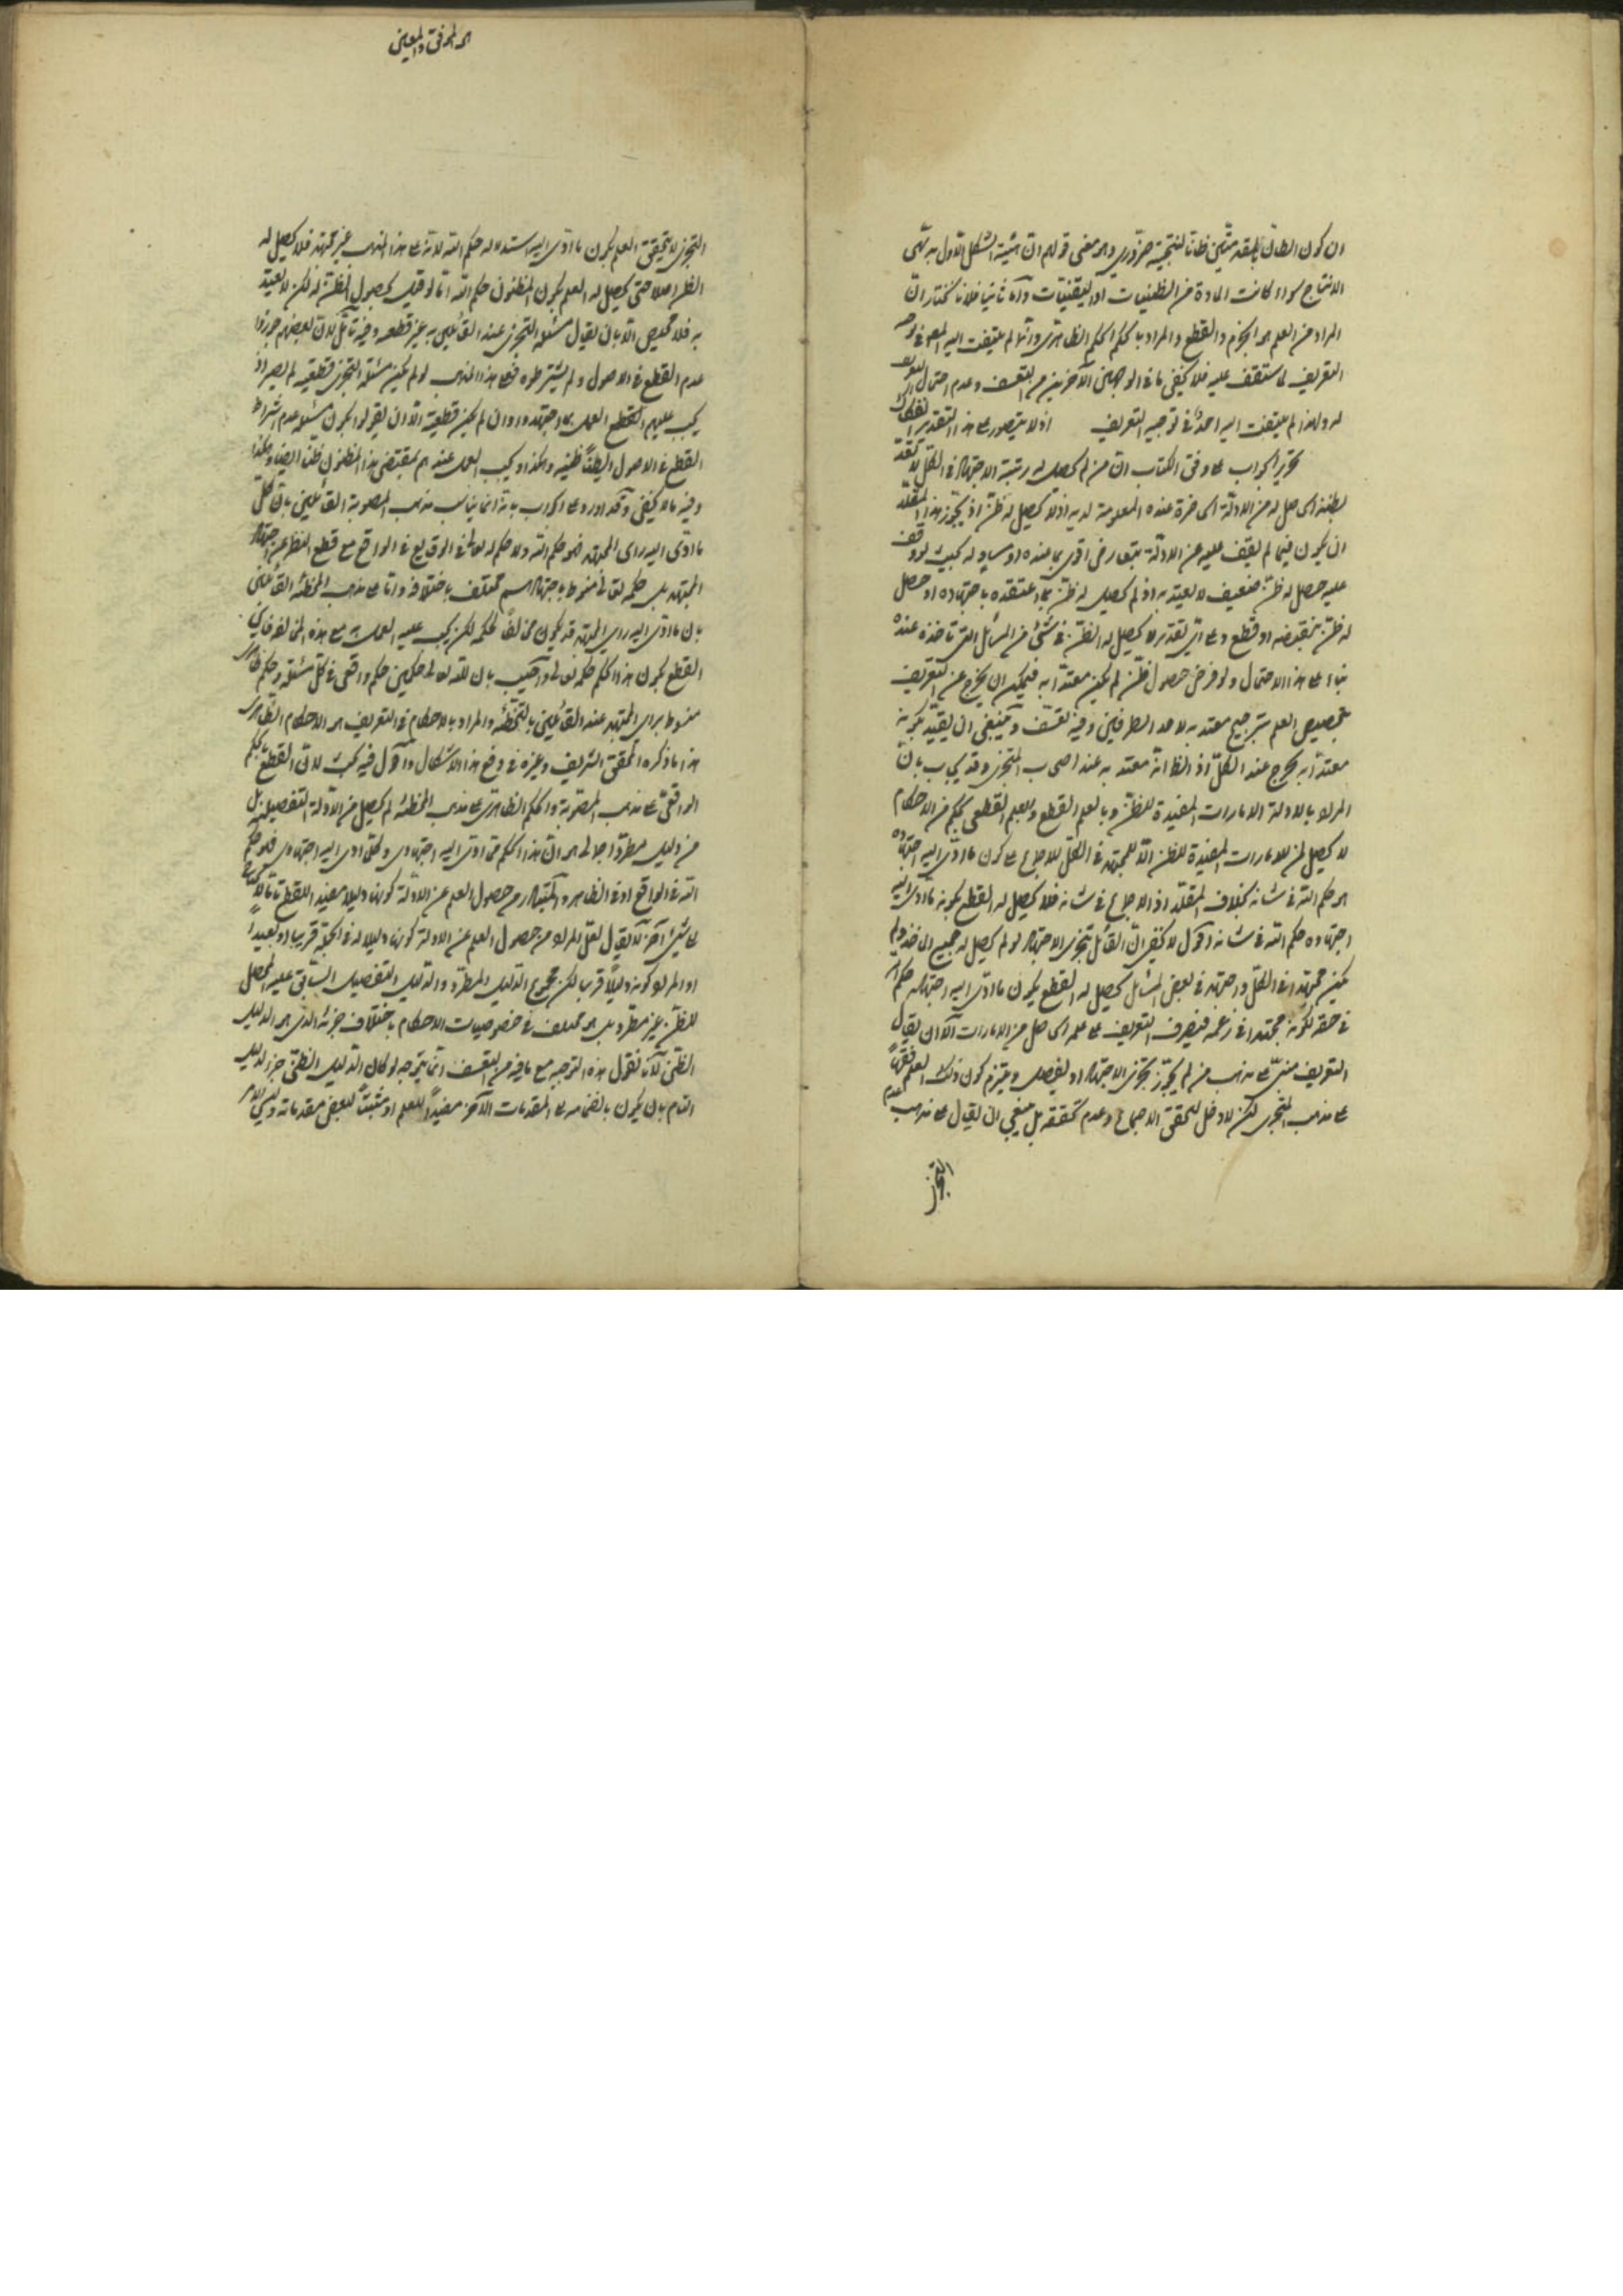 ان كون الظان بالمقدمتين ظانا لنتيجة ضروري وهو معنى قولهم ان هيئة الشكل الاول بديهى
الانتاج سواء كانت المادة من الظنيات او اليقنيات واما ثانيا فلانا نختار ان
المراد من العلم هو الجزم والقطع والمراد بالحكم الحكم الظاهرى وانما لم يلتفت اليه المصنف فى توجيه
التعريف لما ستقف عليه فلا يخفى ما فى الوجهين الآخرين من التعسف وعدم احتمال التعريف
له ولهذا لم يلتفت اليه احد فى توجيه التعريف اذ لا يتصور على هذا التقدير انفكاك
تحرير الجواب على وفق الكتاب ان من لم يحصل له رتبة الاجتهاد فى الكل لا يعتد
بظنه الحاصل له من الادلة الحاضرة عنده المعلومة لديه اذ لا يحصل له ظن اذ يجوز هذا المقلد
ان يكون فيما لم يقف عليه من الادلة يتعارض اقوى مما عنده او مساو له بحيث لو وقف
عليه حصل له ظن ضعيف لا يعتد به اذ لم يحصل له ظن بما اعتقده باجتهاده او حصل
له ظن بنقيضه او قطع وعلى اى تقدير لا يحصل له الظن فى شئ من المسائل التى مأخذه عنده
بناء على هذا الاحتمال ولو فرض حصول ظن لم يكن معتدا به فيمكن ان يخرج عن التعريف
بتخصيص العلم بترجيح معتد به لاحد الطرفين وفيه تعسف وينبغى ان يقيد بكونه
معتدا به يخرج عند الكل اذ الظ انه معتد به عند اصحاب التجزى وقد يجاب بان
المراد بالادلة الامارات المفيدة للظن وبالعلم القطع والعلم القطعى بحكم من الاحكام
لا يحصل من الامارات المفيدة للظن الا للمجتهد فى الكل للاجماع على كون ما ادى اليه اجتهاده
هو حكم الله فى شانه بخلاف المقلد اذ لا اجماع فى شانه فلا يحصل له القطع بكونه ما ادى اليه
اجتهاده حكم الله فى شانه واقول لا يخفى ان القائل بتجزى الاجتهاد لو لم يحصل له جميع المآخذ ولم
يكن مجتهدا فى الكل واجتهد فى بعض المسائل يحصل له القطع بكون ما ادى اليه اجتهاده حكم الله
فى حقه لكونه مجتهدا فى زعمه فيصرف التعريف على علمه الحاصل من الامارات الا ان يقال
التعريف مبنى على مذهب من لم يجوز تجزى الاجتهاد او يفصل ويلتزم كون ذلك العلم فقها
على مذهب التجزى لكن لا دخل لتحقق الاجماع وعدم تحققه بل ينبغى ان يقال على مذهب عدم
التجزى
هو الموفق والمعين
التجزى لا يتحقق العلم بكون ما ادى اليه استدلاله حكم الله لانه على هذا المذهب غير مجتهد فلا يحصل له
الظن اصلا حتى يحصل له العلم بكون المظنون حكم الله اما لو قيل بحصول الظن له لكن لا يعتد
به فلا محيص الا بان يقال مسئلة التجزى عند القائلين به غير قطعه وفيه تأمل لان بعضهم جوزوا
عدم القطع فى الاصول ولم يشترطوه فعلى هذا المذهب لو لم يكن مسئلة التجزى قطعية لم يصر اذ
يجب عليهم القطع العمل بما اجتهدوا وان لم يكن قطعية الا ان يقولوا بكون مسئلة عدم اشتراط
القطع فى الاصول ايضا ظنية وهكذا ويجب العمل عندهم بمقتضى هذا المظنون ظنا ايضا وهكذا
وفيه ما لا يخفى وقد اورد على الجواب بانه انما يناسب مذهب المصوبة القائلين بان كل
ما ادى اليه راى المجتهد فهو حكم الله ولا حكم له تعالى فى الوقايع فى الواقع مع قطع النظر عن اجتهاد
المجتهد بل حكمه تعالى منوط باجتهادهم مختلف باختلافه واما على مذهب المخطئة القائلين
بان ما ادى اليه راى المجتهد قد يكون مخالفا لحكمه لكن يجب عليه العمل به مع هذه المخالفة فاين
القطع بكون هذا الحكم حكمه تعالى واجيب بان لله تعالى حكمين حكم واقعى فى كل مسئلة وحكم ظاهرى
منوط براى المجتهد عند القائلين بالتخطئة والمراد بالاحكام فى التعريف هو الاحكام الظاهرى
هذا ما ذكره المحقق الشريف وغيره فى دفع هذا الاشكال واقول فيه بحث لان القطع بالحكم
الواقعى على مذهب المصوبة والحكم الظاهرى على مذهب المخطئه لم يحصل من الادلة التفصيلية بل
من دليل مطرد اجمالى هو ان هذا الحكم مما ادى اليه اجتهادى وكلما ادى اليه اجتهادى فهو حكم
الله فى الواقع او فى الظاهر والمتبادر من حصول العلم عن الادلة كونها دليلا مفيدا للقطع تاما لا يحتاج
الى شئ آخر لا يقال لعل المراد من حصول العلم عن الادلة كونها دليلا له فى الجملة قريبا او بعيدا
او المراد كونه دليلا قريبا لكن مجموع الدليل المطرد والدليل التفصيلى السابق عليه المحصل
للظن غير مطرد بل هو مختلف فى خصوصيات الاحكام باختلاف جزئه الذى هو الدليل
الظنى لانا نقول هذه التوجيه مع ما فيه من التعسف انما يتوجه لو كان الدليل الظنى جزء الدليل
التام بان يكون بانضمامه على المقدمات الآخر مفيدا للعلم او مثبتا لبعض مقدماته وليس الامر